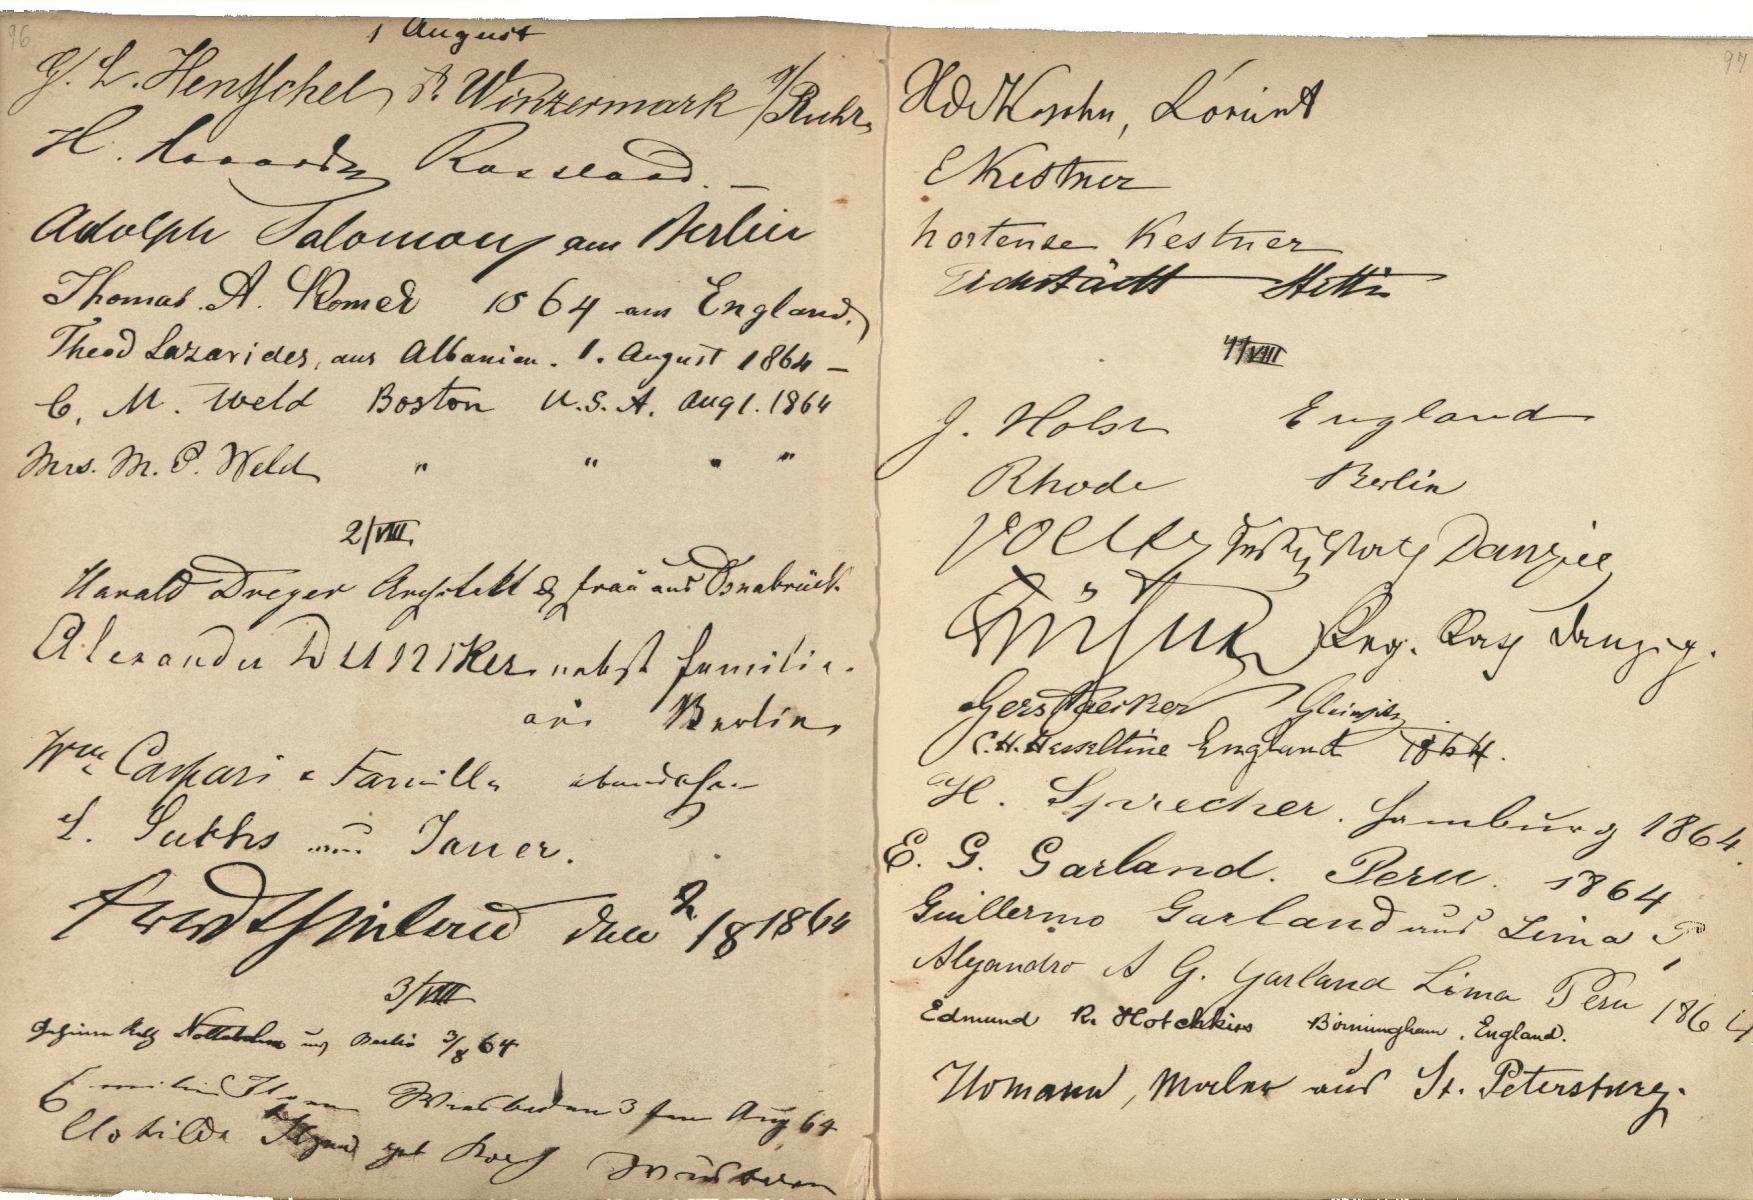 96
1 August
G. L. Hentschel, Winzermark a/Ruhr,
H.
Adolph Salomon aus Berlin
Thomas A. Romer 1864 aus England.
Theod Lazarides, aus Albanien. 1. August 1864 –
C. M. Weld Boston U.S.A. Aug 1. 1864
Mrs. M. P. Weld " " " "
2/VIII.
Harald Dreyer Architekt & Frau aus Osnabrück.
Alexander Duncker nebst Familie.
aus Berlin
Wm Caspari & Familie ebendaher
L. aus Jauer.
den 2/8 1864
3/VIII
Geheimer Rath Nottebohm aus Berlin 3/8 64
Wiesbaden 3ten Aug 64
Clotilde geb Wiesbaden
97
E Kestner
hortense Kestner
Eichstädt Stettin
4/VIII
J. Holst England
Rhode Berlin
Danzig
Reg. Rath Danzig.
Gerstaecker Gleiwitz
C. H. Hesseltine England 1864.
H. Sprecher. Hamburg 1864.
E. G. Garland. Peru. 1864
Guillermo Garland aus Lima P
Alejandro A G. Garland Lima Peru 1864
Edmund R. Hotchkiss Birmingham, England.
Homann, Maler aus St. Petersburg.